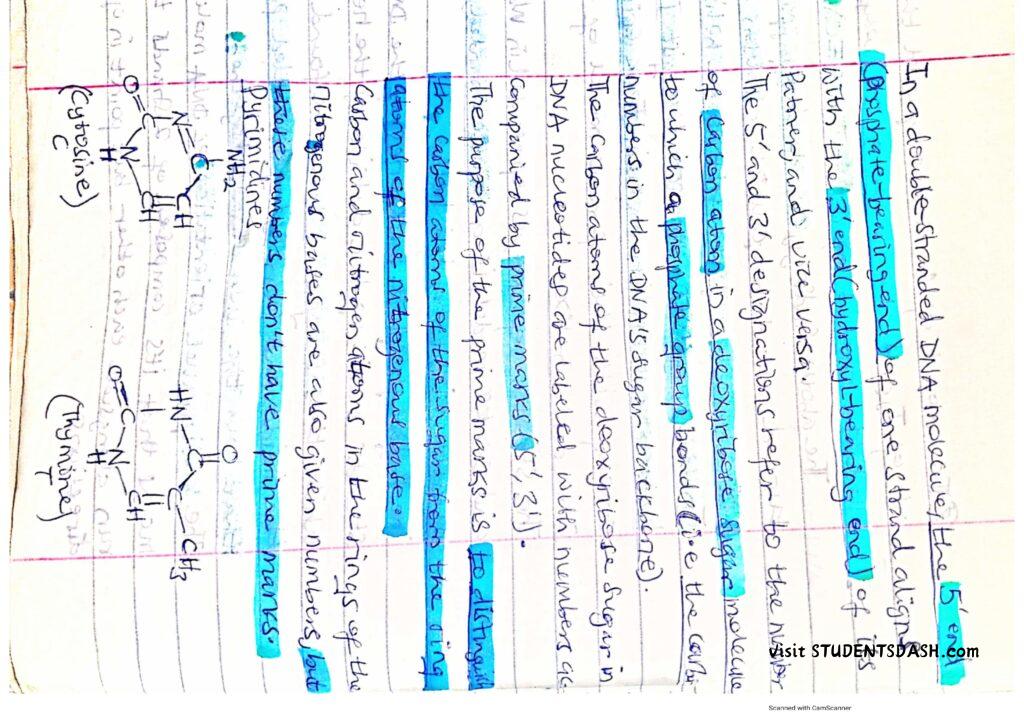 In a double-stranded DNA molecule, the 5' end
(phosphate-bearing end) of one strand aligns
with the 3' end (hydroxyl-bearing end) of its
Partner, and vice versa.
The 5' and 3' designations refer to the number
of carbon atom in a deoxyribose sugar molecule
to which a phosphate group bonds (i.e the carbon
numbers in the DNA's sugar backbone).
The carbon atoms of the deoxyribose sugar in
DNA nucleotides are labeled with numbers ac
companied by prime marks (5', 3').
The purpose of the prime marks is to distinguish
the carbon atoms of the sugar from the ring
atoms of the nitrogenous base.
Carbon and nitrogen atoms in the rings of the
nitrogenous bases are also given numbers, but
these numbers don't have prime marks.
Pyrimidines
NH2
N=C
CH
O=C
N
H
CH
C
(Cytosine)
O
HN
C
C
CH3
O=C
N
H
CH
T
(Thymine)
visit STUDENTSDASH.com
Scanned with CamScanner